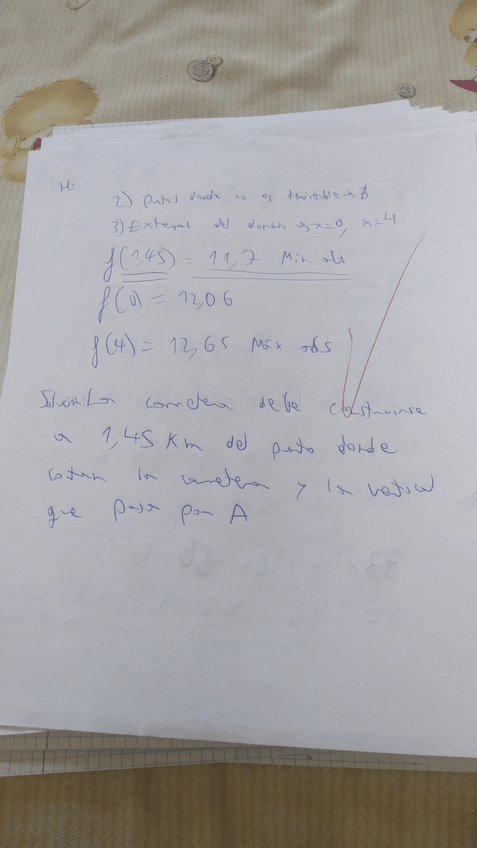 2) puntos donde no es derivable → ∄
3) Extremos del dominio → x=0, x=4
f(1,45) = 11,7 Min abs
f(0) = 12,06
f(4) = 12,65 Máx abs
Solución: La carretera debe construirse
a 1,45 Km del punto donde
cortan la carretera y la vertical
que pasa por A